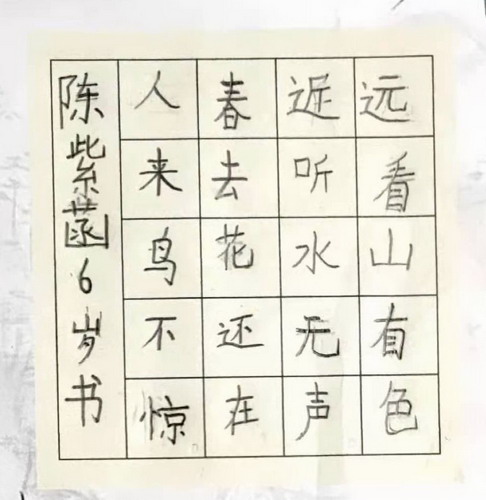 远看山有色
近听水无声
春去花还在
人来鸟不惊
陈紫菡6岁书